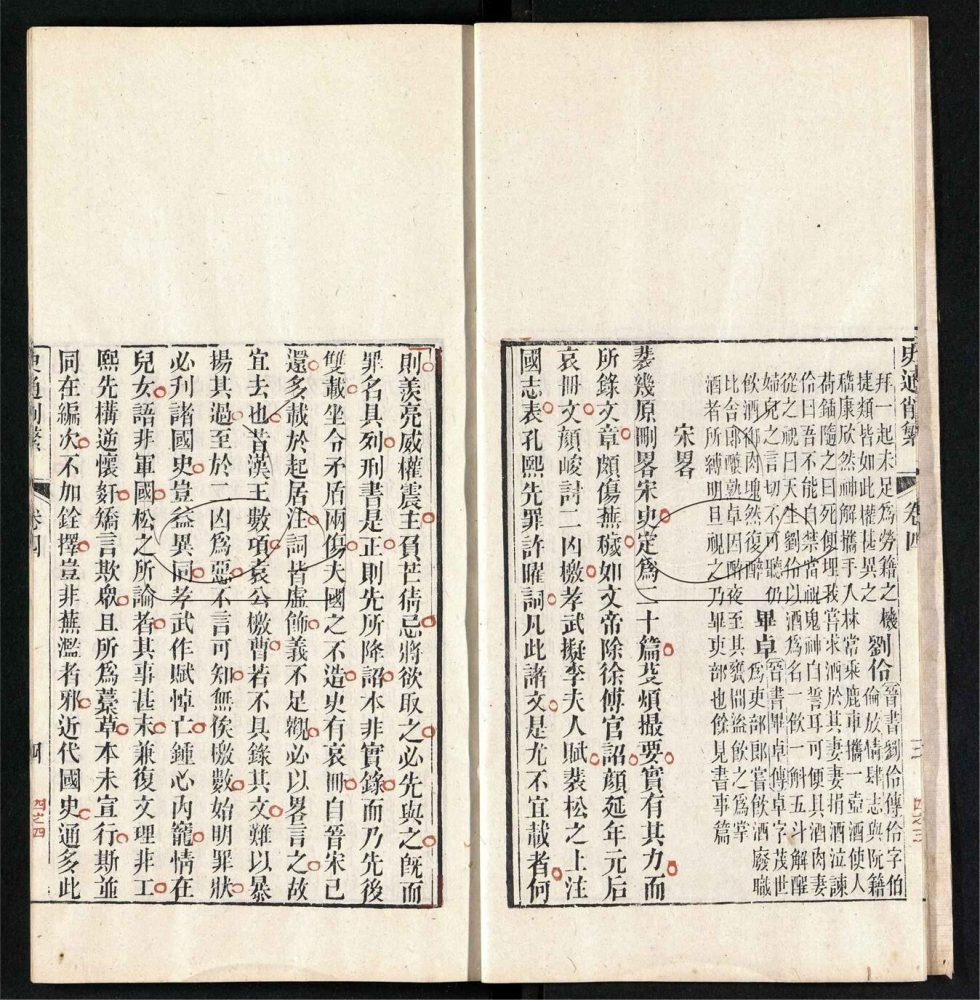 史通削繁 卷四 三
四之三
拜一起未足為勞籍之機
捷類皆如此權甚異之
劉伶
晉書劉伶傳伶字伯
倫放情肆志與阮籍
嵇康欣然神解攜手入林常乘鹿車攜一壺酒使人
荷鍤隨之曰死便埋我嘗求酒於其妻妻捐酒泣諫
伶曰吾不能自禁當祝鬼神自誓耳可便具酒肉妻
從之祝曰天生劉伶以酒為名一飲一斛五斗解酲
婦兒之言切不可聽仍
飲酒御肉塊然復醉
畢卓
晉書畢卓傳卓字茂世
為吏部郎嘗飲酒廢職
比舍郎釀熟卓因醉夜至其甕間盜飲之為掌
酒者所縛明旦視之乃畢吏部也餘見書事篇
宋畧
裴幾原刪畧宋史定為二十篇芟煩撮要實有其力而
所錄文章頗傷蕪穢如文帝除徐傅官詔顏延年元后
哀冊文顏峻討二凶檄孝武擬李夫人賦裴松之上注
國志表孔熙先罪許曜詞凡此諸文是尤不宜載者何
則羨亮威權震主負芒猜忌將欲取之必先與之既而
罪名具列刑書是正則先所降詔本非實錄而乃先後
雙載坐令矛盾兩傷夫國之不造史有哀冊自晉宋已
還多載於起居注詞皆虛飾義不足觀必以畧言之故
宜去也昔漢王數項袁公檄曹若不具錄其文難以暴
揚其過至於二凶為惡不言可知無俟檄數始明罪狀
必刋諸國史豈益異同孝武作賦悼亡鍾心內寵情在
兒女語非軍國松之所論者其事甚末兼復文理非工
熙先構逆懷奸矯言欺眾且所為藁草本未宣行斯並
同在編次不加銓擇豈非蕪濫者邪近代國史通多此
史通削繁 卷四 四
四之四